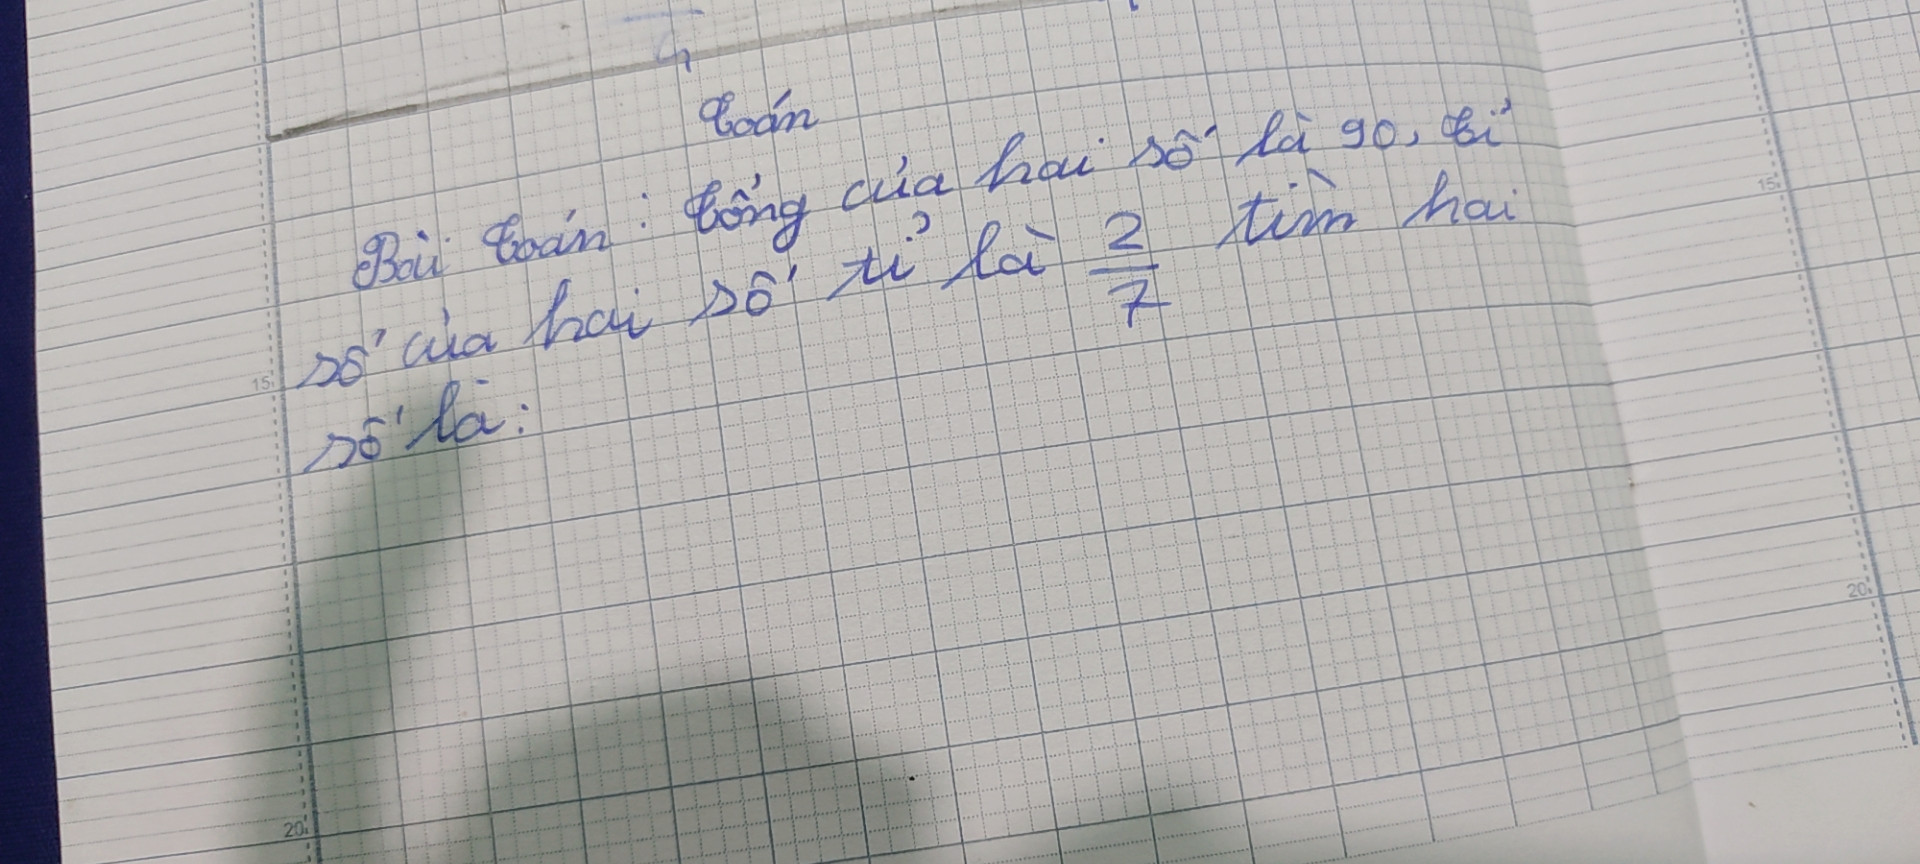 4
Toán
Bài toán: Tổng của hai số là 90, tỉ
số của hai số tỉ là 2/7 tìm hai
số là:
15
20
15
20